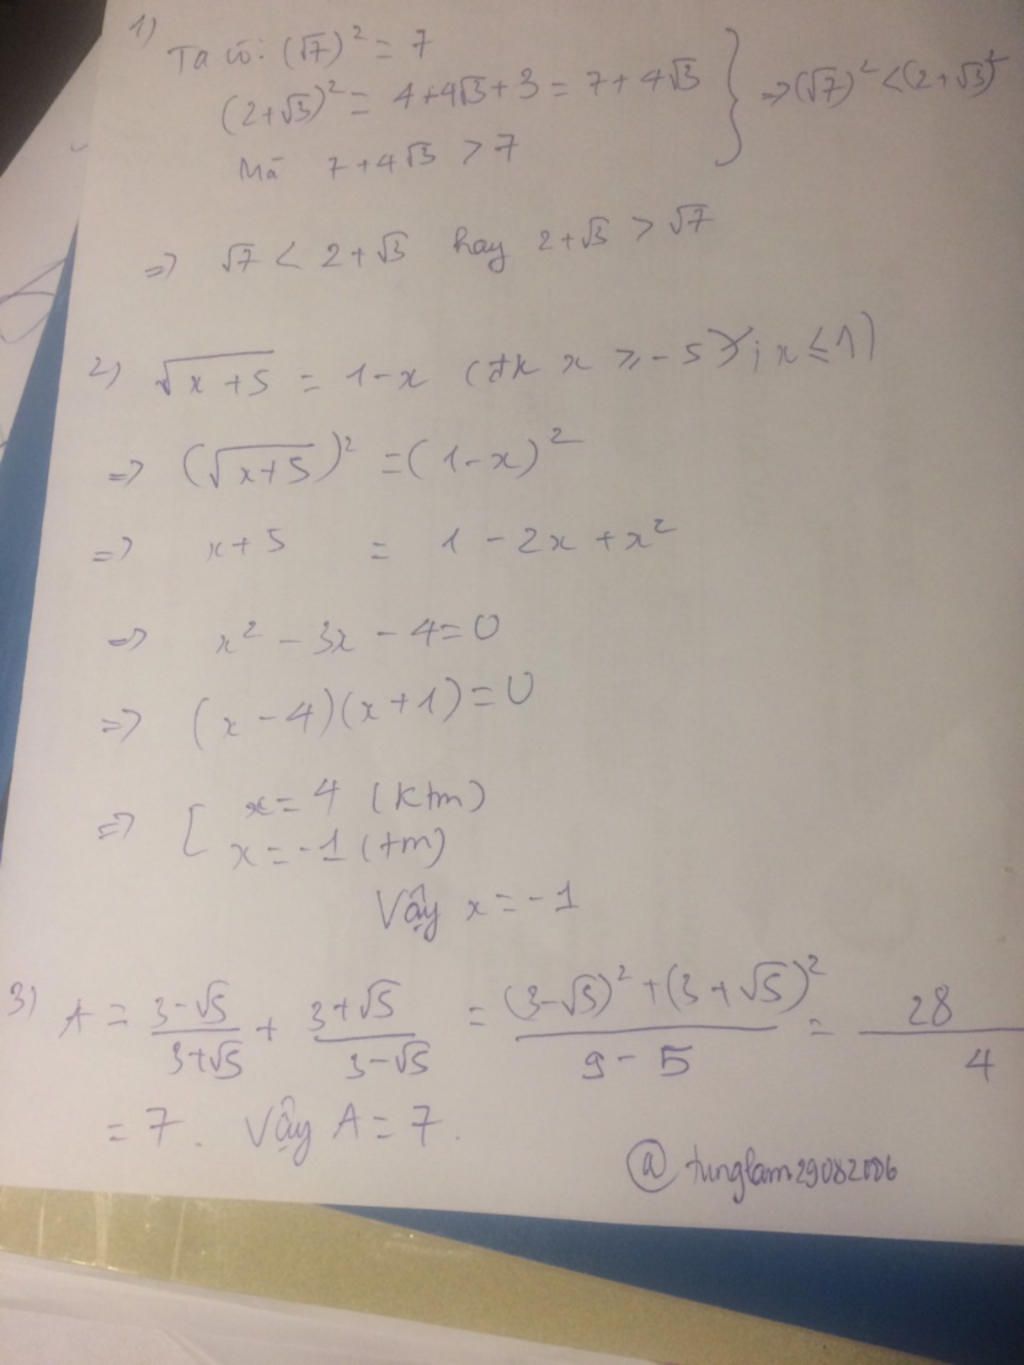 1)
Ta có: (√7)² = 7
(2+√3)² = 4+4√3+3 = 7+4√3 } => (√7)² < (2+√3)²
Mà 7+4√3 > 7
=> √7 < 2+√3 hay 2+√3 > √7
2) √(x+5) = 1-x (đk x ≥ -5; x ≤ 1)
=> (√(x+5))² = (1-x)²
=> x+5 = 1-2x+x²
=> x² - 3x - 4 = 0
=> (x-4)(x+1) = 0
=> [ x = 4 (ktm)
x = -1 (tm)
Vậy x = -1
3) A = (3-√5)/(3+√5) + (3+√5)/(3-√5) = ((3-√5)² + (3+√5)²)/(9-5) = 28/4
= 7. Vậy A = 7.
@tunglam29082006